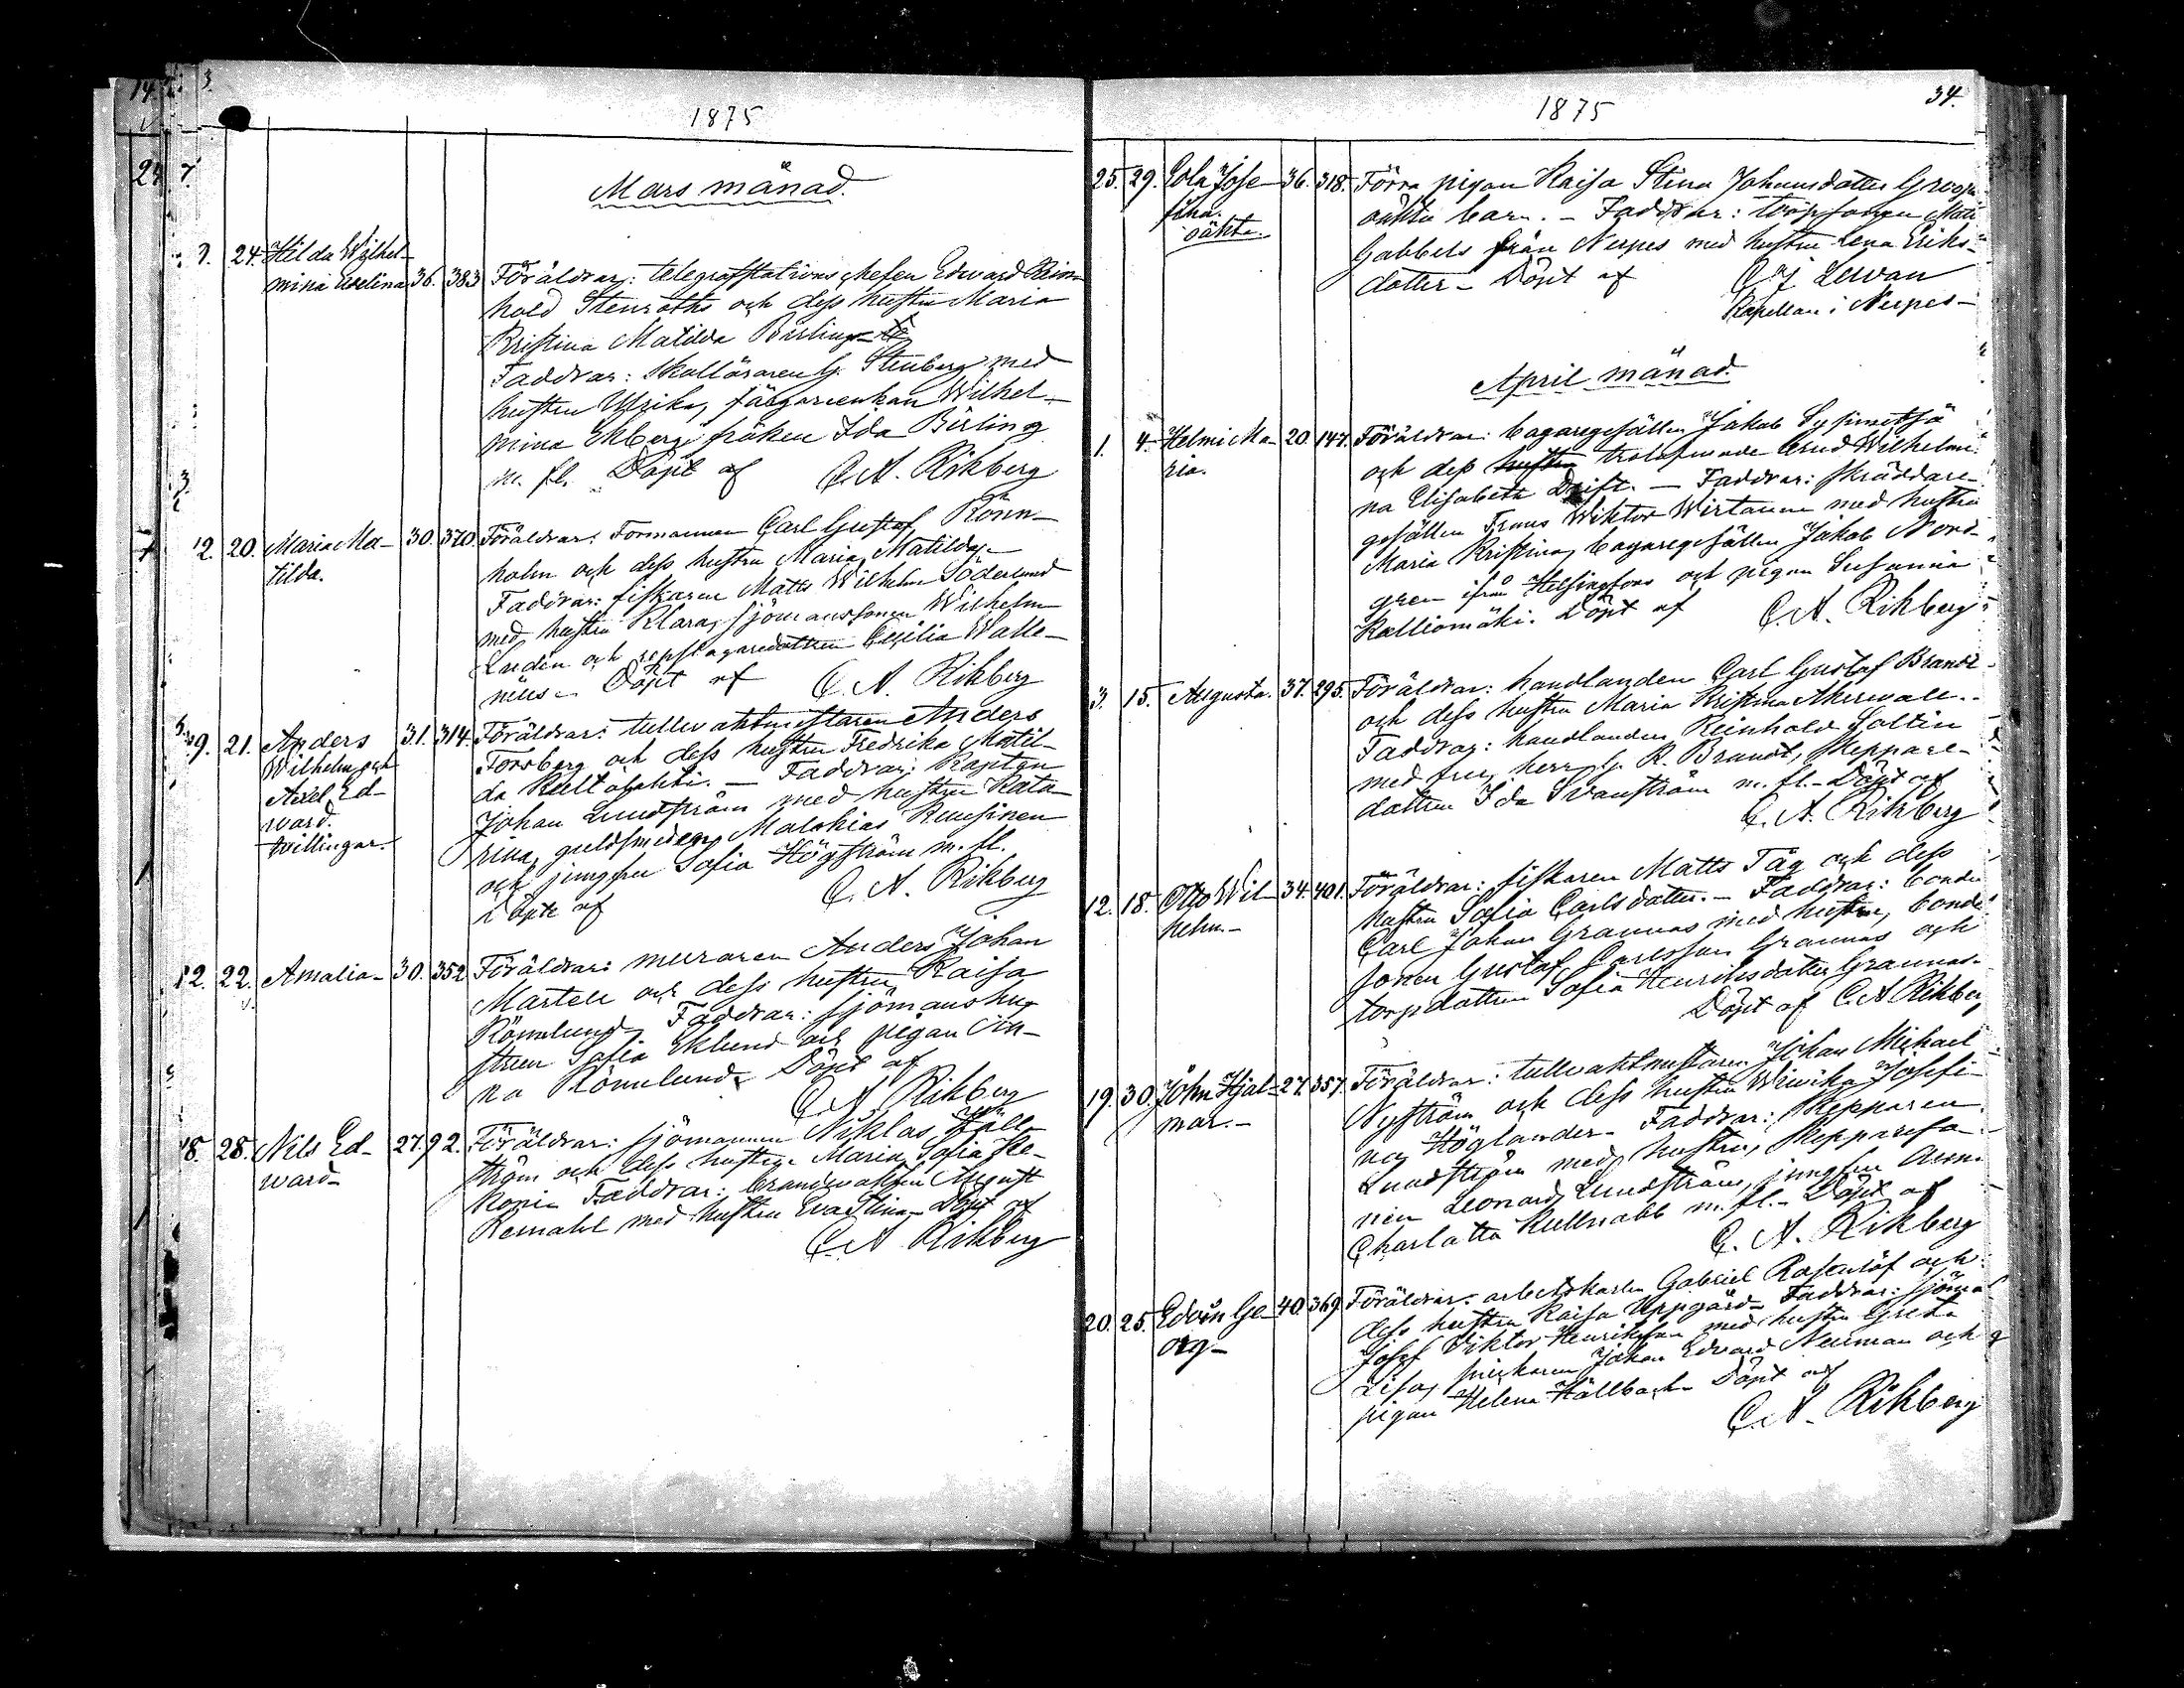 1875
Mars månad.
24. Hilda Wilhel-
mina Evelina 36. 383 Föräldrar: telegrafstations chefen Edward Rein-
hold Stenroths och dess hustru Maria
Kristina Matilda Börling
Faddrar: Skolläraren G. Stenberg med
hustru Ulrika, färgareenkan Wilhel-
mina Ekberg fröken Ida Börling
m. fl. Döpt af C. A. Rikberg
12. 20. Maria Ma- 30. 370. Föräldrar: Formannen Carl Gustaf Rönn-
tilda. holm och dess hustru Maria Matilda
Faddrar: fiskaren Matts Wilhelm Söderlund
med hustru Klara, sjömanssonen Wilhelm
Lindén och repslagaredottren Cecilia Walle-
nius - Döpt af C. A. Rikberg
9. 21. Anders 31. 314. Föräldrar: tullvaktmästaren Anders
Wilhelm och Forsberg och dess hustru Fredrika Matil-
Axel Ed- da Kultalahti. - Faddrar: Kapten
ward. Johan Lundström med hustru Kata-
Twillingar. rina, guldsmeden Malakias
och jungfru Sofia Högström m. fl.
Döpte af C. A. Rikberg
12. 22. Amalia- 30. 352. Föräldrar: muraren Anders Johan
Martell och dess hustru Kaisa
Rönnlund Faddrar: sjömanshu-
strun Sofia Eklund och pigan An-
na Rönnlund. Döpt af
C. A. Rikberg
18. 28. Nils Ed- 27. 92. Föräldrar: sjömannen Niklas Häll-
ward- ström och dess hustru Maria Sofia
Faddrar: brandvakten August
med hustru Eva Stina- Döpt af
C. A. Rikberg
1875
34.
25. 29. Lola Jose- 36. 318. Förra pigan Kaisa Stina Johansdotter
fina. oäkta barn. - Faddrar: torpsonen Matts
oäkta. Gabbels från Nerpes med hustru Lena Eriks-
dotter - Döpt af C J Lewan
Kapellan i Nerpes-
April månad.
1. 4. Helmi Ma- 20. 147. Föräldrar: bagaregesällen Jakob
ria. och dess hustru trolofwade Arud Wilhelmi-
na Elisabeth Drift. - Faddrar: skräddare-
gesällen Frans Wiktor Wirtanen med hustru
Maria Kristina, bagaregesällen Jakob Nord-
gren ifrån Helsingfors och pigan Susanna
Kalliomäki. Döpt af C. A. Rikberg
3. 15. Augusta. 37. 295. Föräldrar: handlanden Carl Gustaf Brandt
och dess hustru Maria Kristina Åkerwall.
Faddrar: handlanden Reinhold Soltin
med fru, herr G. R. Brandt, skeppare-
dottren Ida Svanström m. fl. - Döpt af
C. A. Rikberg
12. 18. Otto Wil- 34. 401. Föräldrar: fiskaren Matts Tåg och dess
helm.- hustru Sofia Carlsdotter. - Faddrar: bonde
Carl Johan Grannas med hustru, bonde
sonen Gustaf Carlsson Grannas och
torpdottren Sofia Henriksdotter Grannas.
Döpt af C. A. Rikberg
19. 30. John Hjal- 27. 357. Föräldrar: tullvaktmästaren Johan Michael
mar.- Nyström och dess hustru Wiwika Josefi-
na Höglander - Faddrar: Skepparen
Lundström med hustru, Skepparefa-
nen Leonard Lundström, jungfru Anna
Charlotta Kullnabb m. fl. - Döpt af
C. A. Rikberg
20. 25. Edvin Ge- 40. 369. Föräldrar: arbetskarlen Gabriel Rosenlöf och
org- dess hustru Kaisa Uppgård Faddrar: sjöman
Josef Viktor Henriksson med hustru Greta
Lisa, snickaren Johan Edvard Neuman och
pigan Helena Hällback - Döpt af
C. A. Rikberg